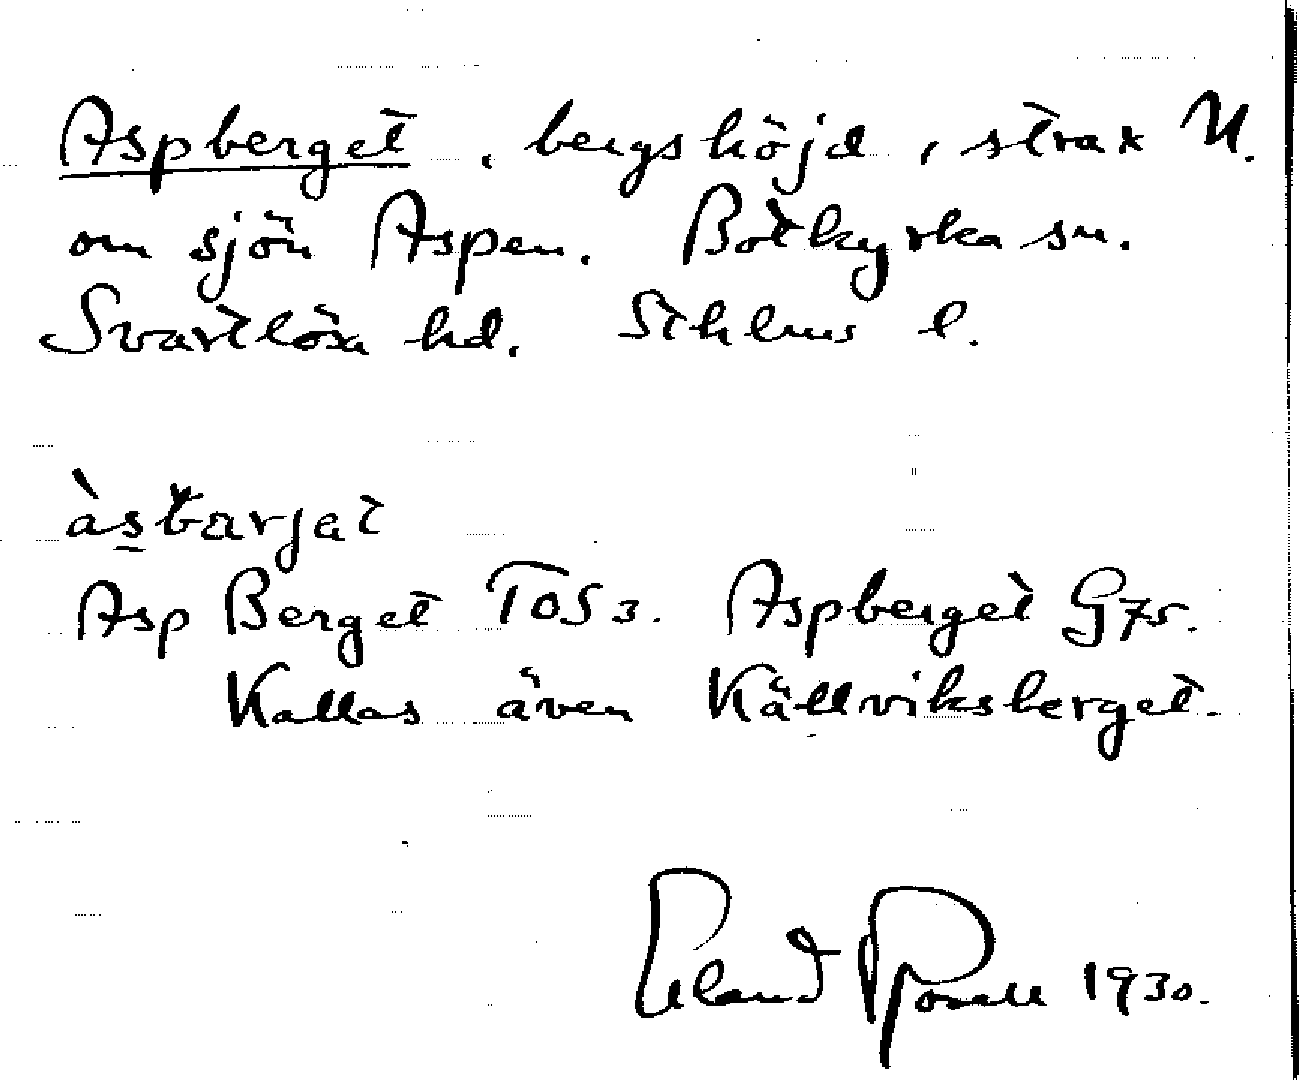 Aspberget, bergshöjd, strax N.
om sjön Aspen. Botkyrka sn.
Svartlösa hd. Sthlms l.
àsbarjat
Asp Berget TOS3. Aspberget G75.
Kallas även Källviksberget.
Erland Rosell 1930.